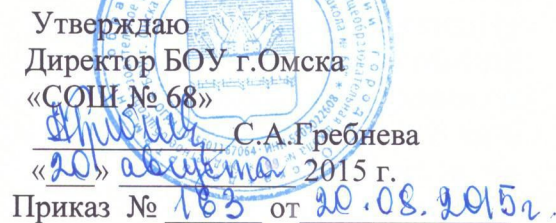 Утверждаю
Директор БОУ г.Омска
«СОШ № 68»
С.А.Гребнева
«20» августа 2015 г.
Приказ № 183 от 20.08.2015г.